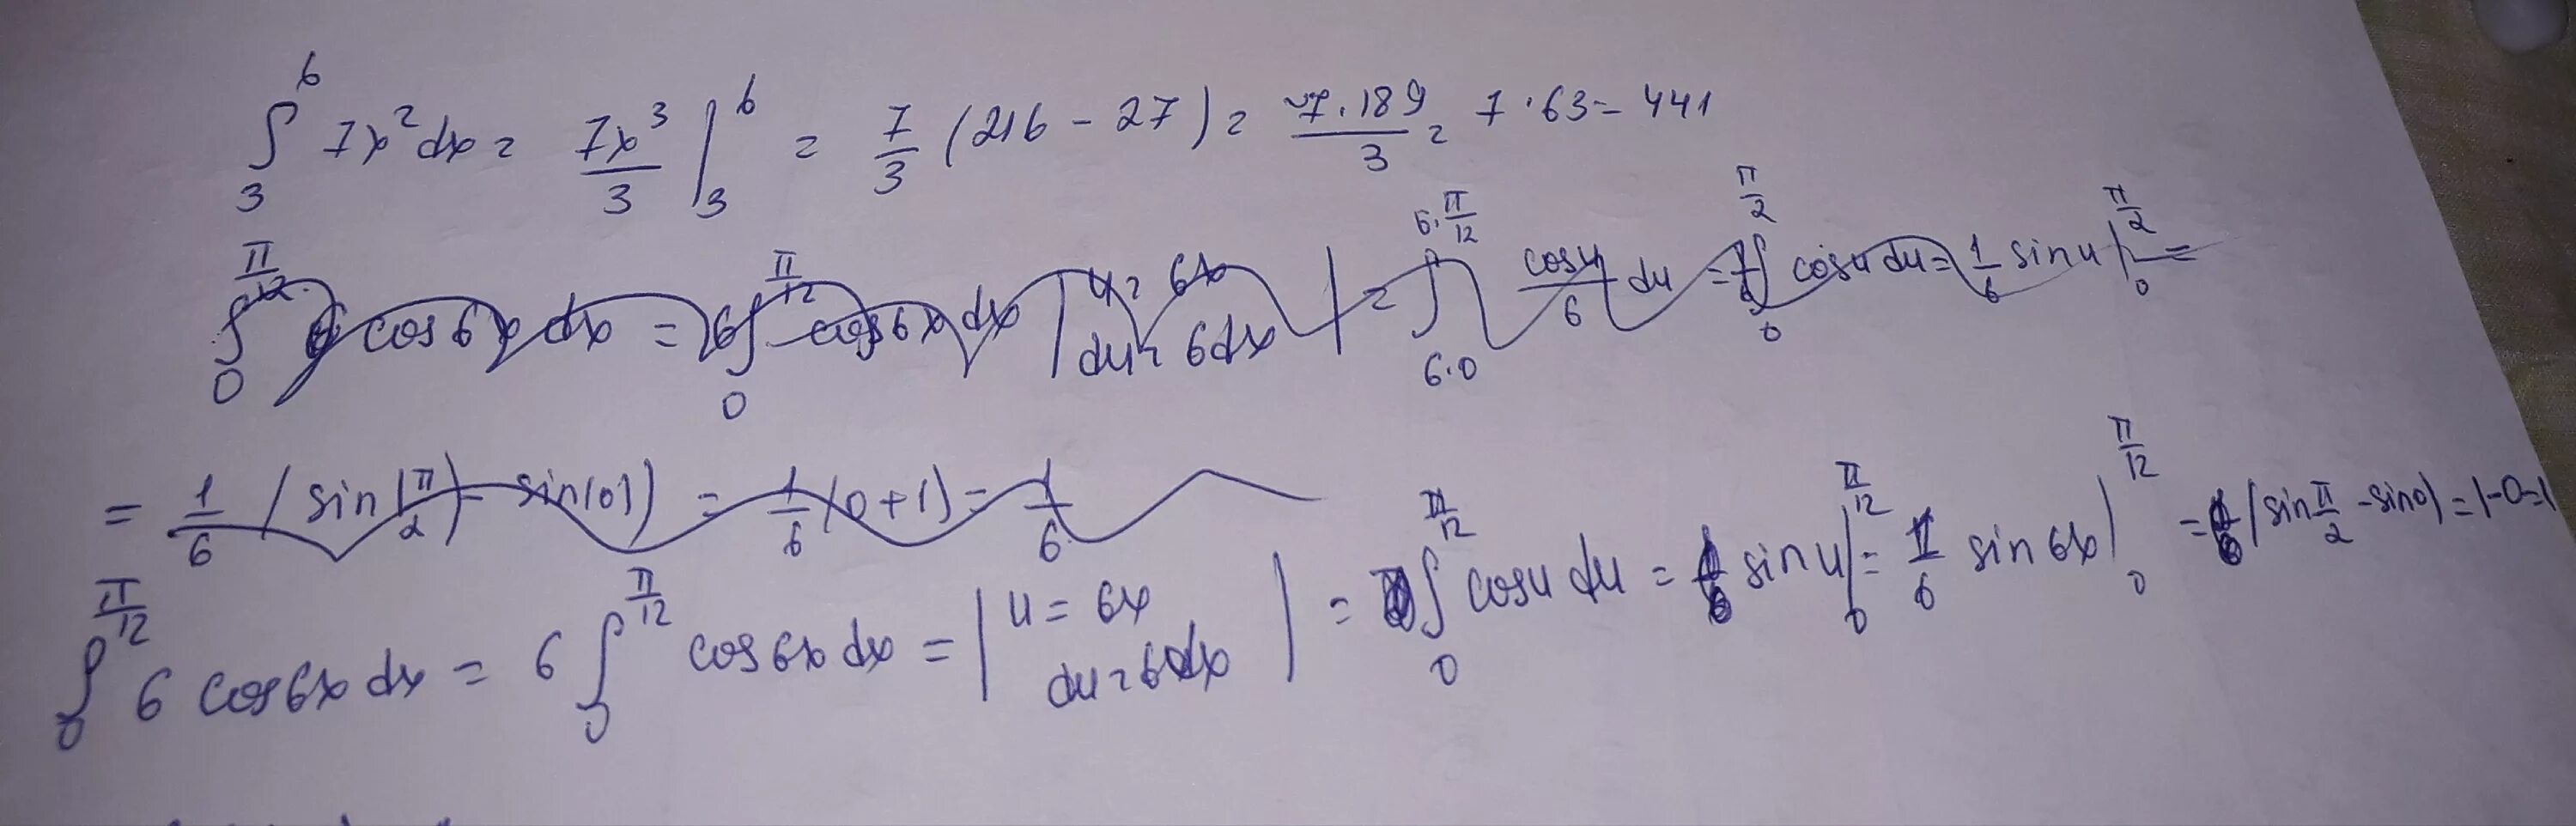 ∫₃⁶ 7x²dx = 7x³/3 |₃⁶ = 7/3 (216 - 27) = 7·189/3 = 7·63 = 441
∫₀^(π/12) 6 cos6x dx = 6∫₀^(π/12) cos6x dx | u = 6x du = 6dx | = ∫_(6·0)^(6·π/12) cosu/6 du = ∫₀^(π/2) cosu du = 1/6 sin u |₀^(π/2) =
= 1/6 (sin(π/2) - sin(0)) = 1/6 (0+1) = 1/6
∫₀^(π/12) 6 cos6x dx = 6 ∫₀^(π/12) cos6x dx = | u = 6x du = 6dx | = ∫₀^(π/12) cosu du = sin u |₀^(π/12) = 1/6 sin 6x |₀^(π/12) = (sin π/2 - sin0) = 1-0=1